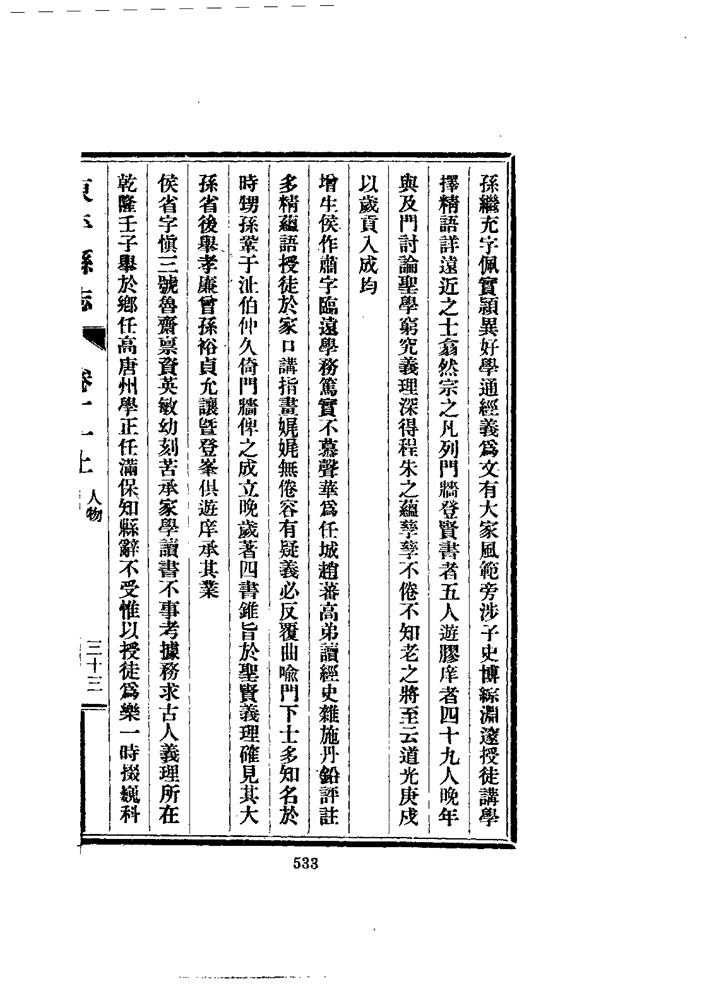 孫繼充字佩實穎異好學通經義爲文有大家風範旁涉子史博綜淵邃授徒講學
擇精語詳遠近之士翕然宗之凡列門牆登賢書者五人遊膠庠者四十九人晚年
與及門討論聖學窮究義理深得程朱之蘊孳孳不倦不知老之將至云道光庚戌
以歲貢入成均
增生侯作肅字臨遠學務篤實不慕聲華爲任城趙蕃高弟讀經史雜施丹鉛評註
多精蘊語授徒於家口講指畫娓娓無倦容有疑義必反覆曲喩門下士多知名於
時甥孫鞏于沚伯仲久倚門牆俾之成立晚歲著四書錐旨於聖賢義理確見其大
孫省後舉孝廉曾孫裕貞允讓曁登峯俱遊庠承其業
侯省字愼三號魯齋禀資英敏幼刻苦承家學讀書不事考據務求古人義理所在
乾隆壬子舉於鄉任高唐州學正任滿保知縣辭不受惟以授徒爲樂一時掇巍科
東平縣志 卷十一上 人物 三十三
533